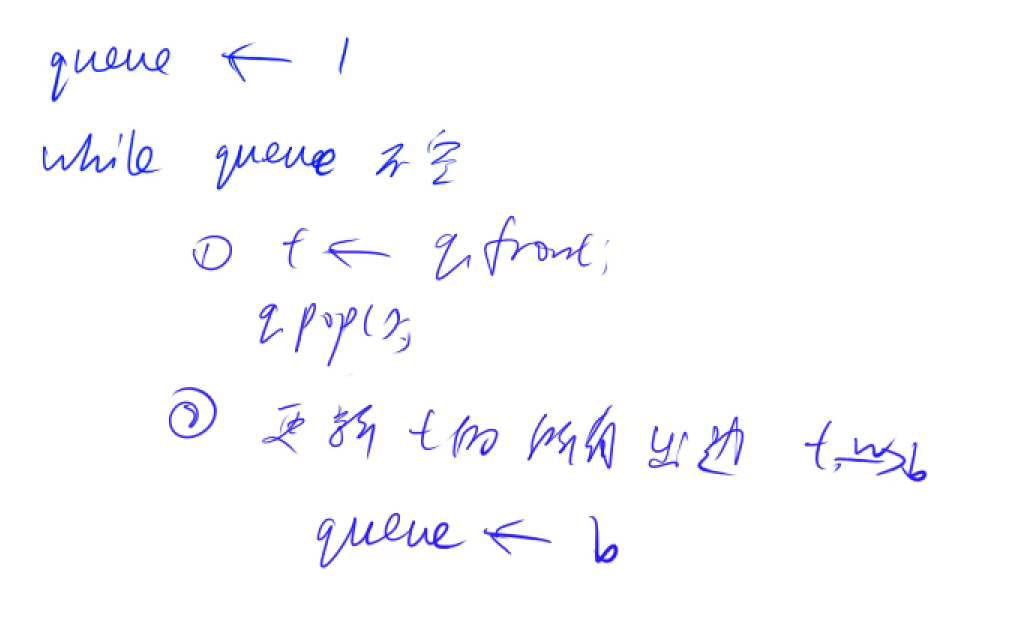 queue ← 1
while queue 不空
① t ← q.front;
q.pop();
② 更新t的所有出边 t →w b
queue ← b